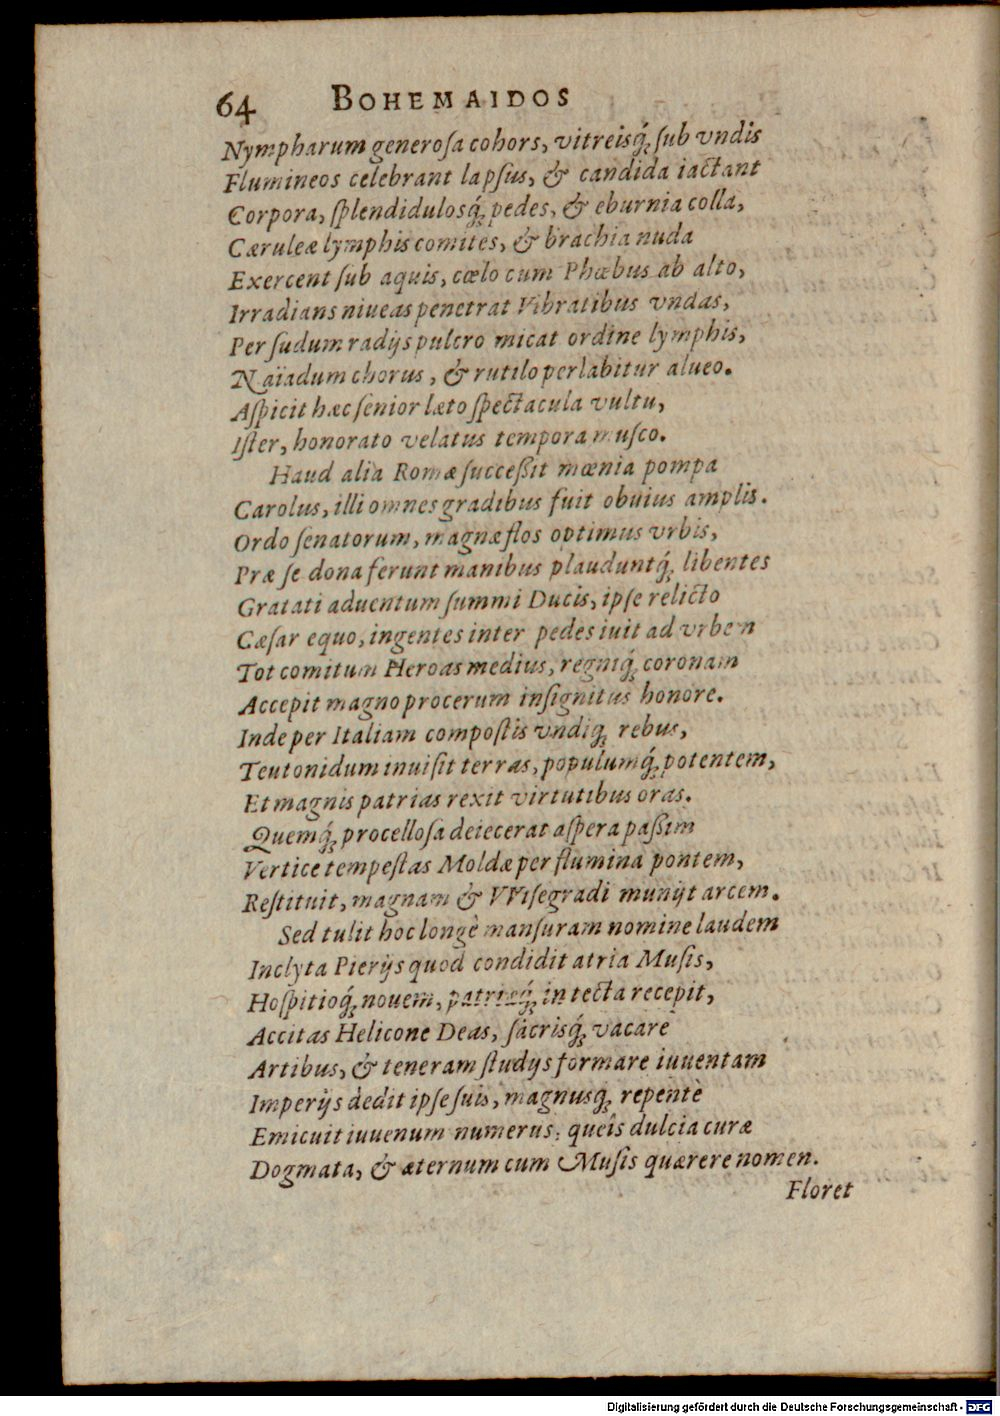 64 BOHEMAIDOS
Nympharum generoſa cohors, vitreisq́ꝫ ſub vndis
Flumineos celebrant lapſus, & candida iactant
Corpora, ſplendidulosq́ꝫ pedes, & eburnia colla,
Cæruleæ lymphis comites, & brachia nuda
Exercent ſub aquis, cœlo cum Phœbus ab alto,
Irradians niueas penetrat Vibratibus vndas,
Per ſudum radijs pulcro micat ordine lymphis,
Naïadum chorus, & rutilo perlabitur alueo.
Aſpicit hæc ſenior læto ſpectacula vultu,
Iſter, honorato velatus tempora muſco.
Haud alia Romæ ſucceßit mœnia pompa
Carolus, illi omnes gradibus fuit obuius amplis.
Ordo ſenatorum, magnæ flos optimus vrbis,
Præ ſe dona ferunt manibus plauduntq́ꝫ libentes
Gratati aduentum ſummi Ducis, ipſe relicto
Cæſar equo, ingentes inter pedes iuit ad vrbem
Tot comitum Heroas medius, regniq́ꝫ coronam
Accepit magno procerum inſignitus honore.
Inde per Italiam compoſtis vndiqꝫ rebus,
Teutonidum inuiſit terras, populumq́ꝫ potentem,
Et magnis patrias rexit virtutibus oras.
Quemq́ꝫ procelloſa deiecerat aſpera paßim
Vertice tempeſtas Moldæ per flumina pontem,
Reſtituit, magnam & VViſegradi munijt arcem.
Sed tulit hoc longè manſuram nomine laudem
Inclyta Pierijs quod condidit atria Muſis,
Hoſpitioq́ꝫ nouem, patriæq́ꝫ in tecta recepit,
Accitas Helicone Deas, ſacrisq́ꝫ vacare
Artibus, & teneram ſtudijs formare iuuentam
Imperijs dedit ipſe ſuis, magnusqꝫ repentè
Emicuit iuuenum numerus: queîs dulcia curæ
Dogmata, & æternum cum Muſis quærere nomen.
Floret
Digitalisierung gefördert durch die Deutsche Forschungsgemeinschaft - DFG